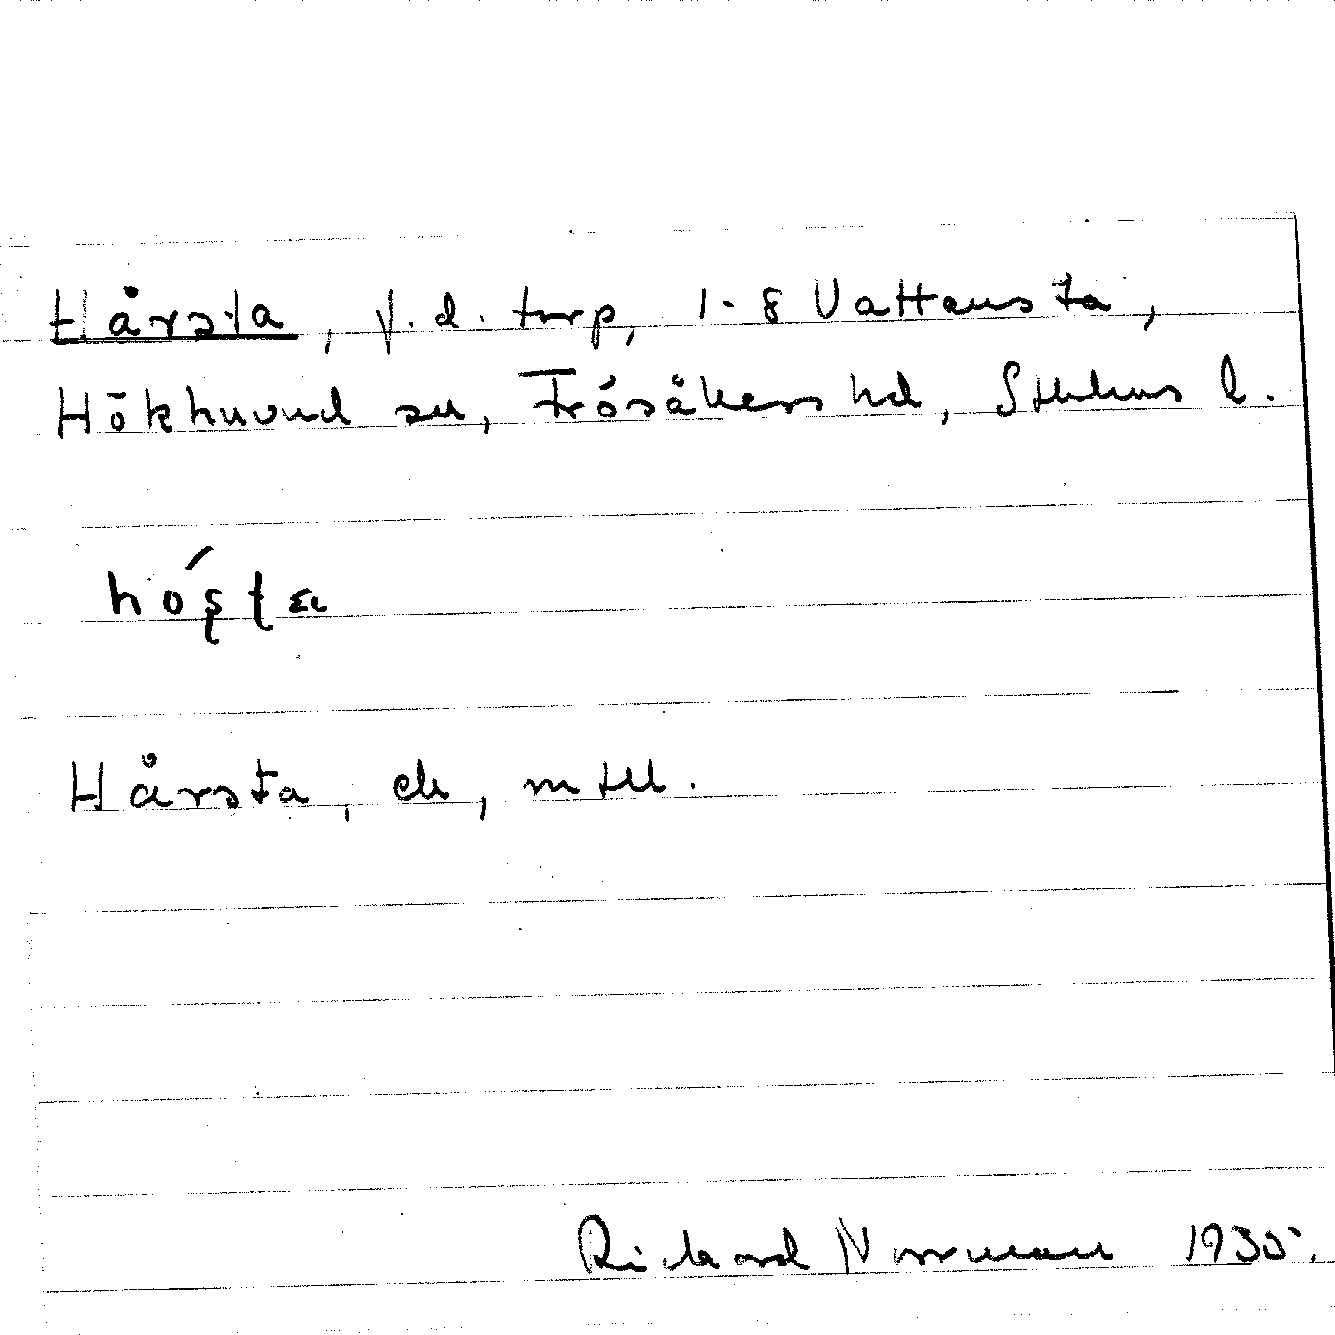 Hårsta, f.d. torp, 1-8 Vattensta,
Hökhuvud sn, Frösåkers hd, Sthlms l.
hóʂʈa
Hårsta, ek, mtll.
Rickard Norrman 1935.